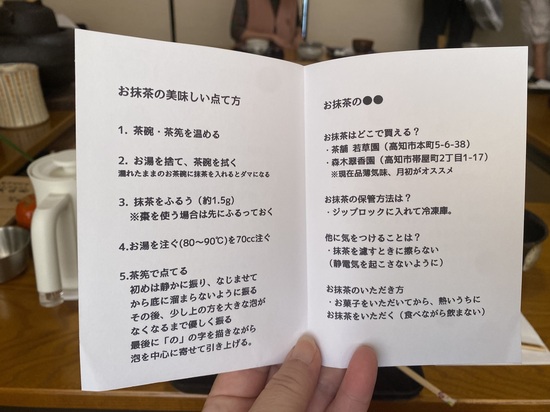 お抹茶の美味しい点て方
1. 茶碗・茶筅を温める
2. お湯を捨て、茶碗を拭く
濡れたままのお茶碗に抹茶を入れるとダマになる
3. 抹茶をふるう（約1.5g）
※棗を使う場合は先にふるっておく
4.お湯を注ぐ(80～90℃)を70cc注ぐ
5.茶筅で点てる
初めは静かに振り、なじませて
から底に溜まらないように振る
その後、少し上の方を大きな泡が
なくなるまで優しく振る
最後に「の」の字を描きながら
泡を中心に寄せて引き上げる。
お抹茶の●●
お抹茶はどこで買える？
・茶舗 若草園（高知市本町5-6-38）
・森木翠香園（高知市帯屋町2丁目1-17）
※現在品薄気味、月初がオススメ
お抹茶の保管方法は？
・ジップロックに入れて冷凍庫。
他に気をつけることは？
・抹茶を濾すときに擦らない
（静電気を起こさないように）
お抹茶のいただき方
・お菓子をいただいてから、熱いうちに
お抹茶をいただく（食べながら飲まない）